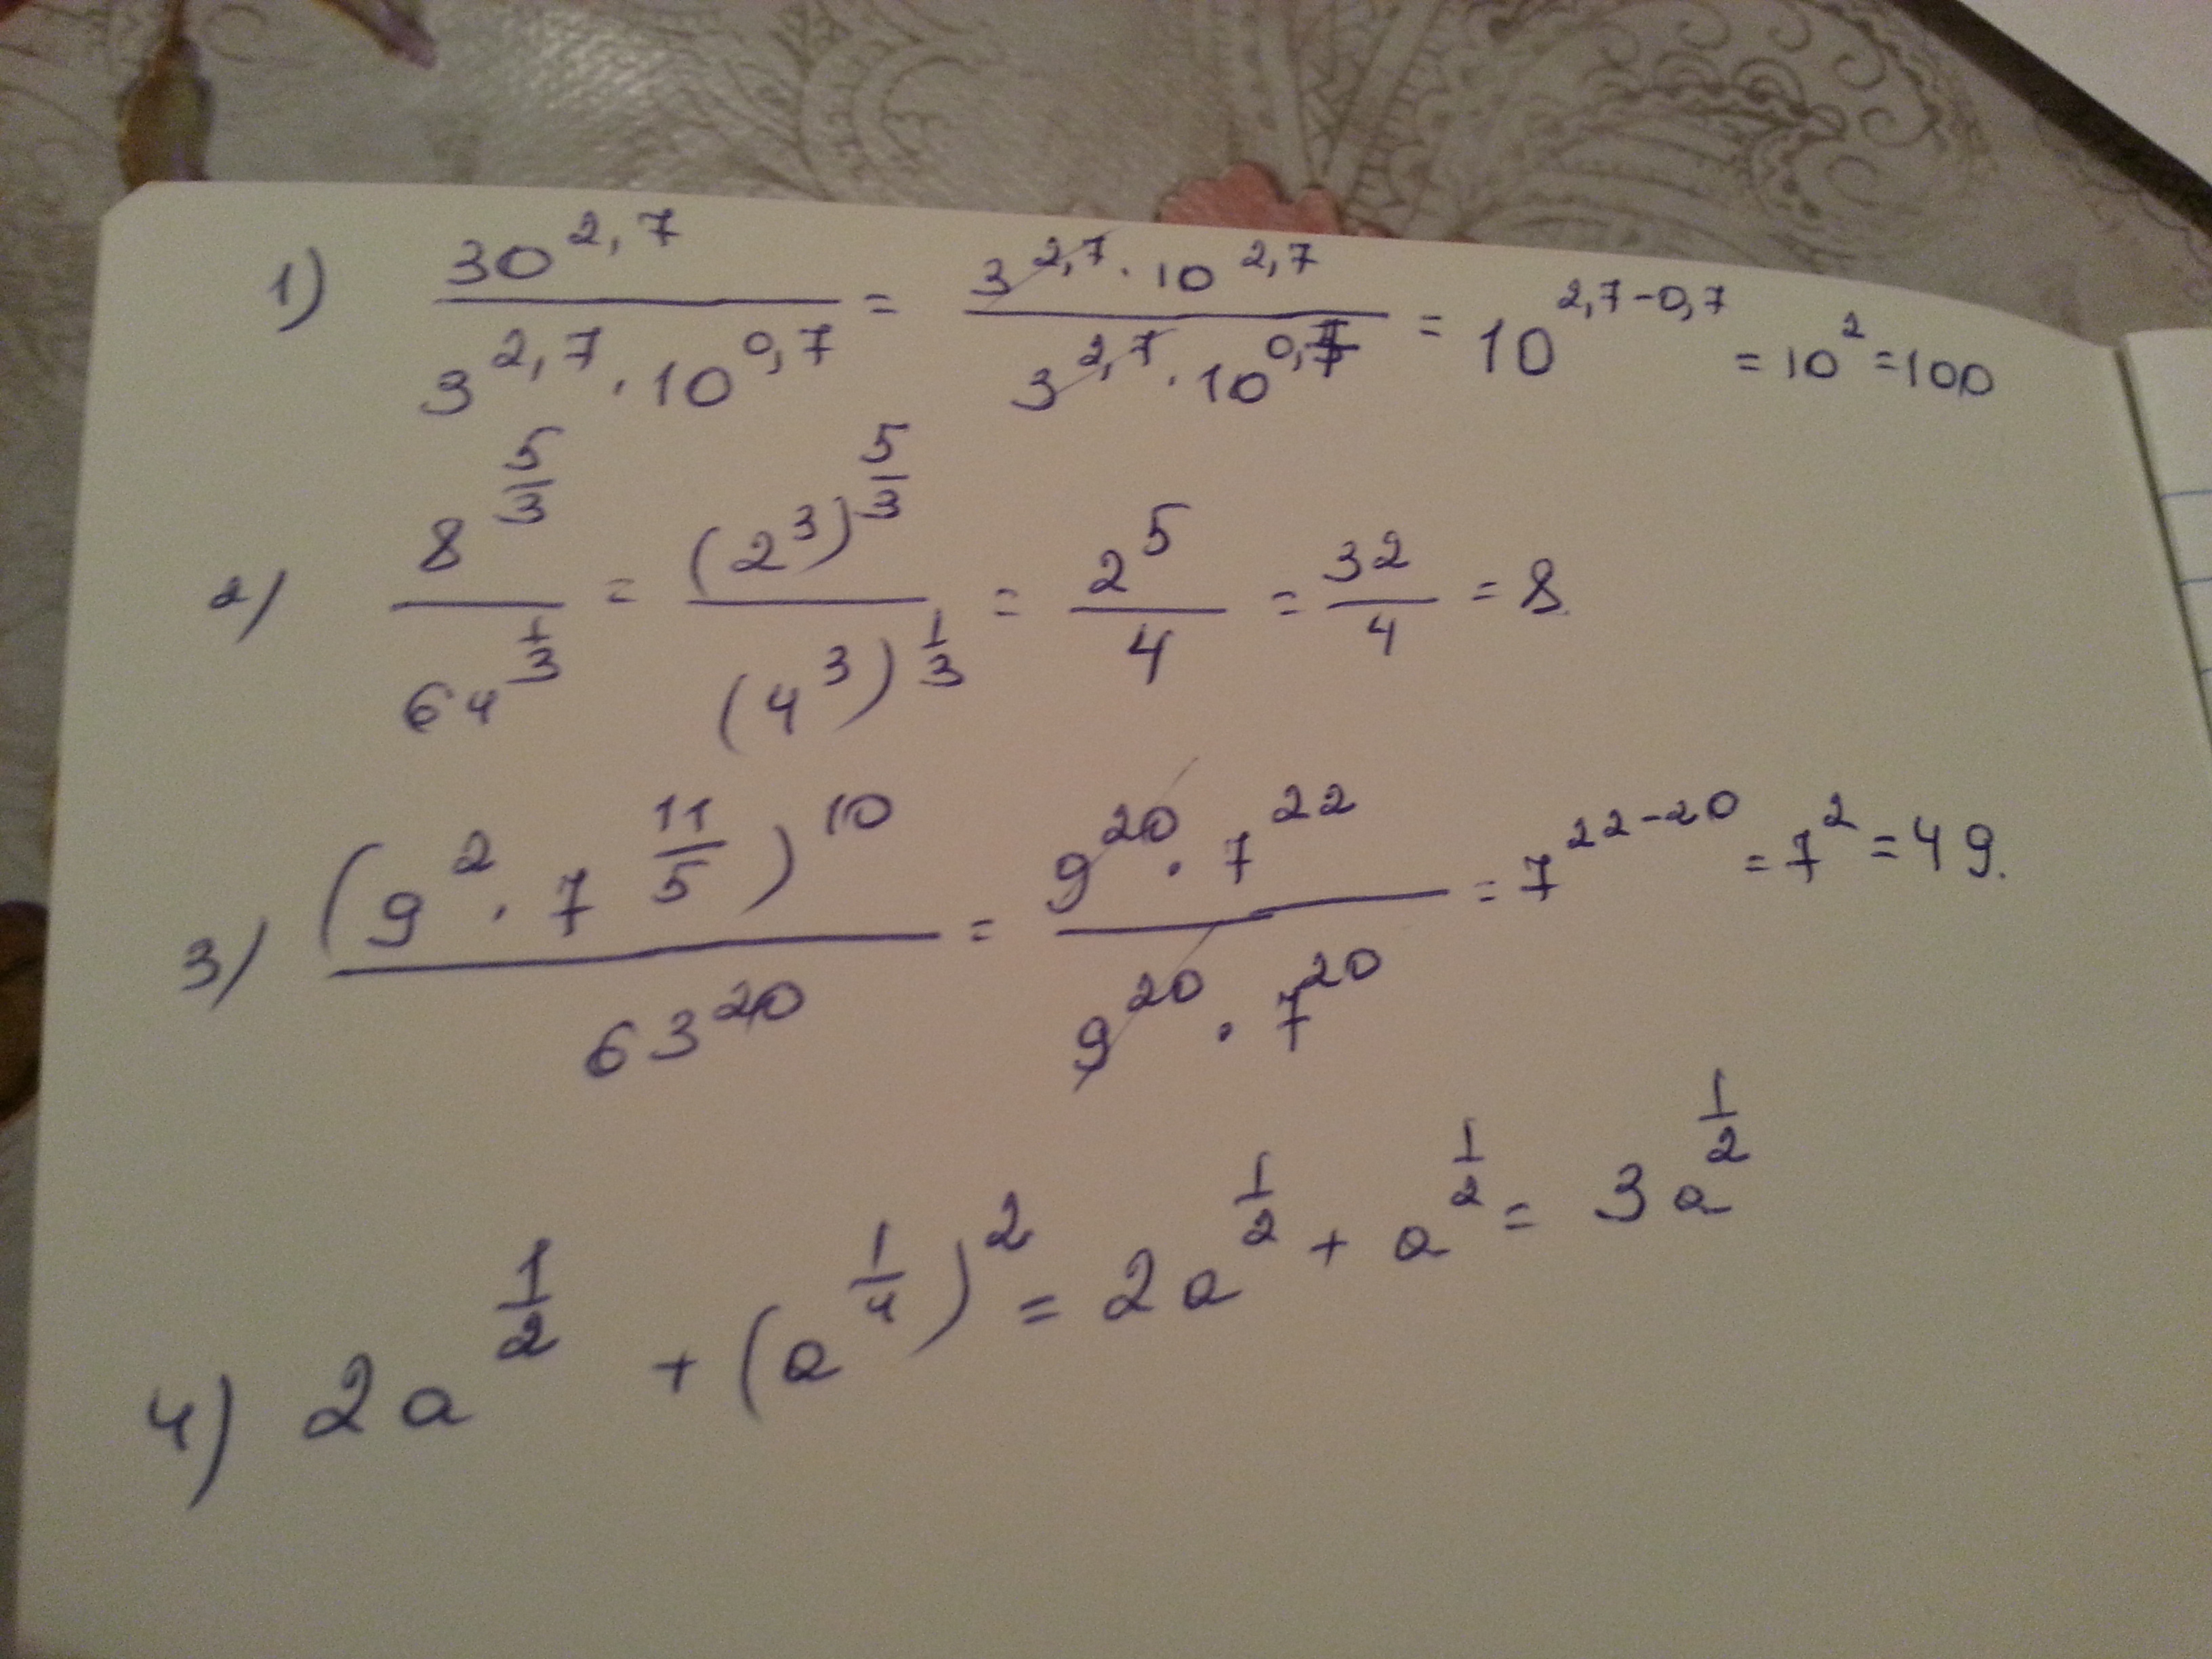 1) \frac{30^{2,7}}{3^{2,7} \cdot 10^{0,7}} = \frac{3^{2,7} \cdot 10^{2,7}}{3^{2,7} \cdot 10^{0,7}} = 10^{2,7-0,7} = 10^2 = 100
2) \frac{8^{\frac{5}{3}}}{64^{\frac{1}{3}}} = \frac{(2^3)^{\frac{5}{3}}}{(4^3)^{\frac{1}{3}}} = \frac{2^5}{4} = \frac{32}{4} = 8.
3) \frac{(9^2 \cdot 7^{\frac{11}{5}})^{10}}{63^{20}} = \frac{9^{20} \cdot 7^{22}}{9^{20} \cdot 7^{20}} = 7^{22-20} = 7^2 = 49.
4) 2a^{\frac{1}{2}} + (a^{\frac{1}{4}})^2 = 2a^{\frac{1}{2}} + a^{\frac{1}{2}} = 3a^{\frac{1}{2}}